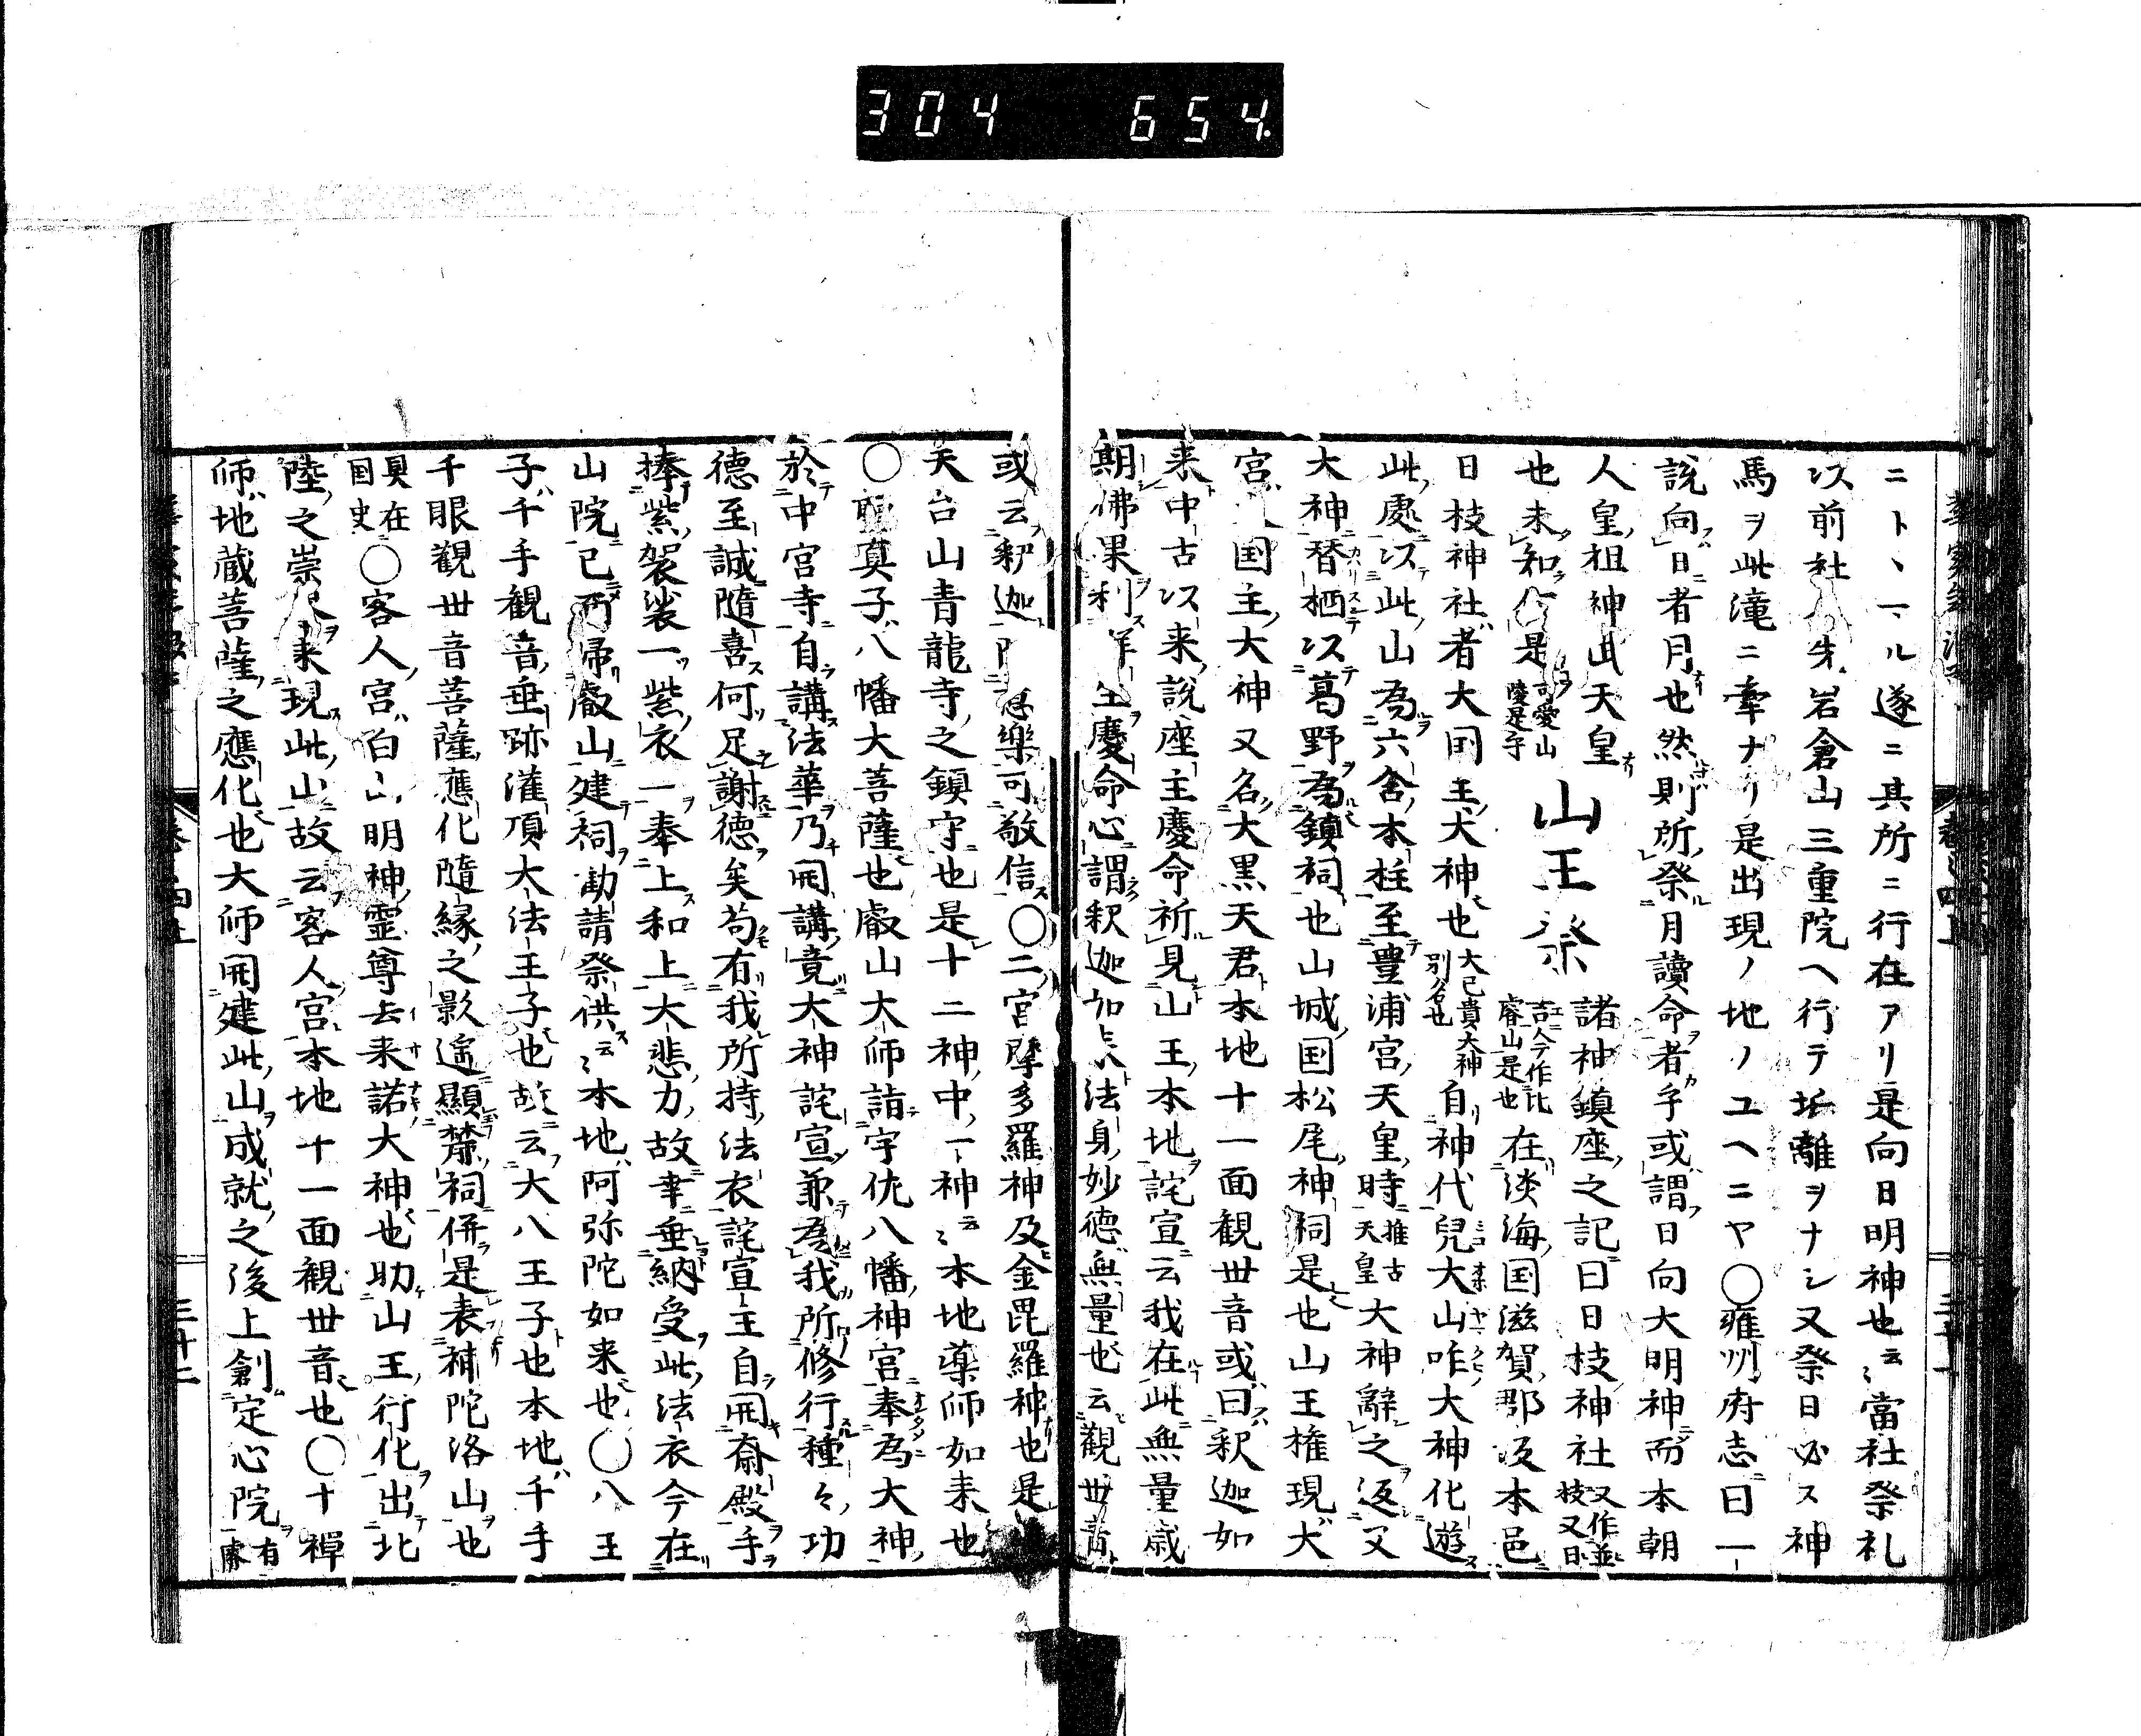 304 654
ニトヽマル遂ニ其所ニ行在アリ是向日明神也云〻當社祭礼
以前社人先岩倉山三重院ヘ行テ垢離ヲナシ又祭日必ス神
馬ヲ此滝ニ牽ナリ是出現ノ地ノユヘニヤ〇雍州府志曰一
說向日者月也然則所祭月讀命者乎或謂日向大明神而本朝
人皇祖神武天皇 諸神鎮座之記曰日枝神社又作並枝又曰
也未知 是可愛山陵是乎
山王祭
吉今作比睿山是也在淡海国滋賀郡坂本邑
日枝神社者大国主大神也大己貴大神別名也自神代兒大山咋大神化遊
此處以此山為六舍本柱至豊浦宮天皇時推古天皇大神辭之返又
大神替栖以葛野為鎮祠也山城国松尾神祠是也山王権現大
宮 国主大神又名大黒天君本地十一面観世音或曰釈迦如
来中古以来說座主慶命祈見山王本地詫宣云我在此無量歳
期佛果利 生慶命心謂釈迦如来法身妙德無量也云觀世音
或云釈迦 樂可敬信〇二宮摩多羅神及金毘羅神也是
天台山青龍寺之鎮守也是十二神中一神云〻本地薬師如来也
〇聖真子八幡大菩薩也叡山大師詣宇佐八幡神宮奉為大神
於中宮寺自講法華乃開講竟大神詫宣兼為我所修行種々功
德至誠隨喜何足謝德矣苟有我所持法衣詫宣主自開斎殿手
捧紫袈裟一紫衣一奉上和上大悲力故幸垂納受此法衣今在
山院已而帰叡山建祠勸請祭供云〻本地阿弥陀如来也〇八王
子千手観音垂跡灌頂大法王子也故云大八王子也本地千手
千眼觀世音菩薩應化隨縁之影遙顯麓祠併是表補陀洛山也
具在国史〇客人宮白山明神霊尊去来諾大神也助山王行化出北
陸之崇 来現此山故云客人宮本地十一面観世音也〇十禅
師地蔵菩薩之應化也大師開建此山成就之後上創定心院有
三十一
三十二